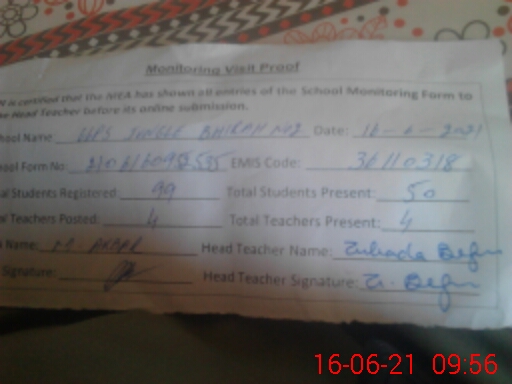 Monitoring Visit Proof
is certified that the MEA has shown all entries of the School Monitoring Form to
Head Teacher before its online submission.
School Name GPS JUNGLE Date: 16-6-2021
Form No: EMIS Code: 36110318
Students Registered: 99 Total Students Present: 50
Teachers Posted: 4 Total Teachers Present: 4
Name: M. AKBAR Head Teacher Name: Begum
Signature: Head Teacher Signature: Z. Begum
16-06-21 09:56